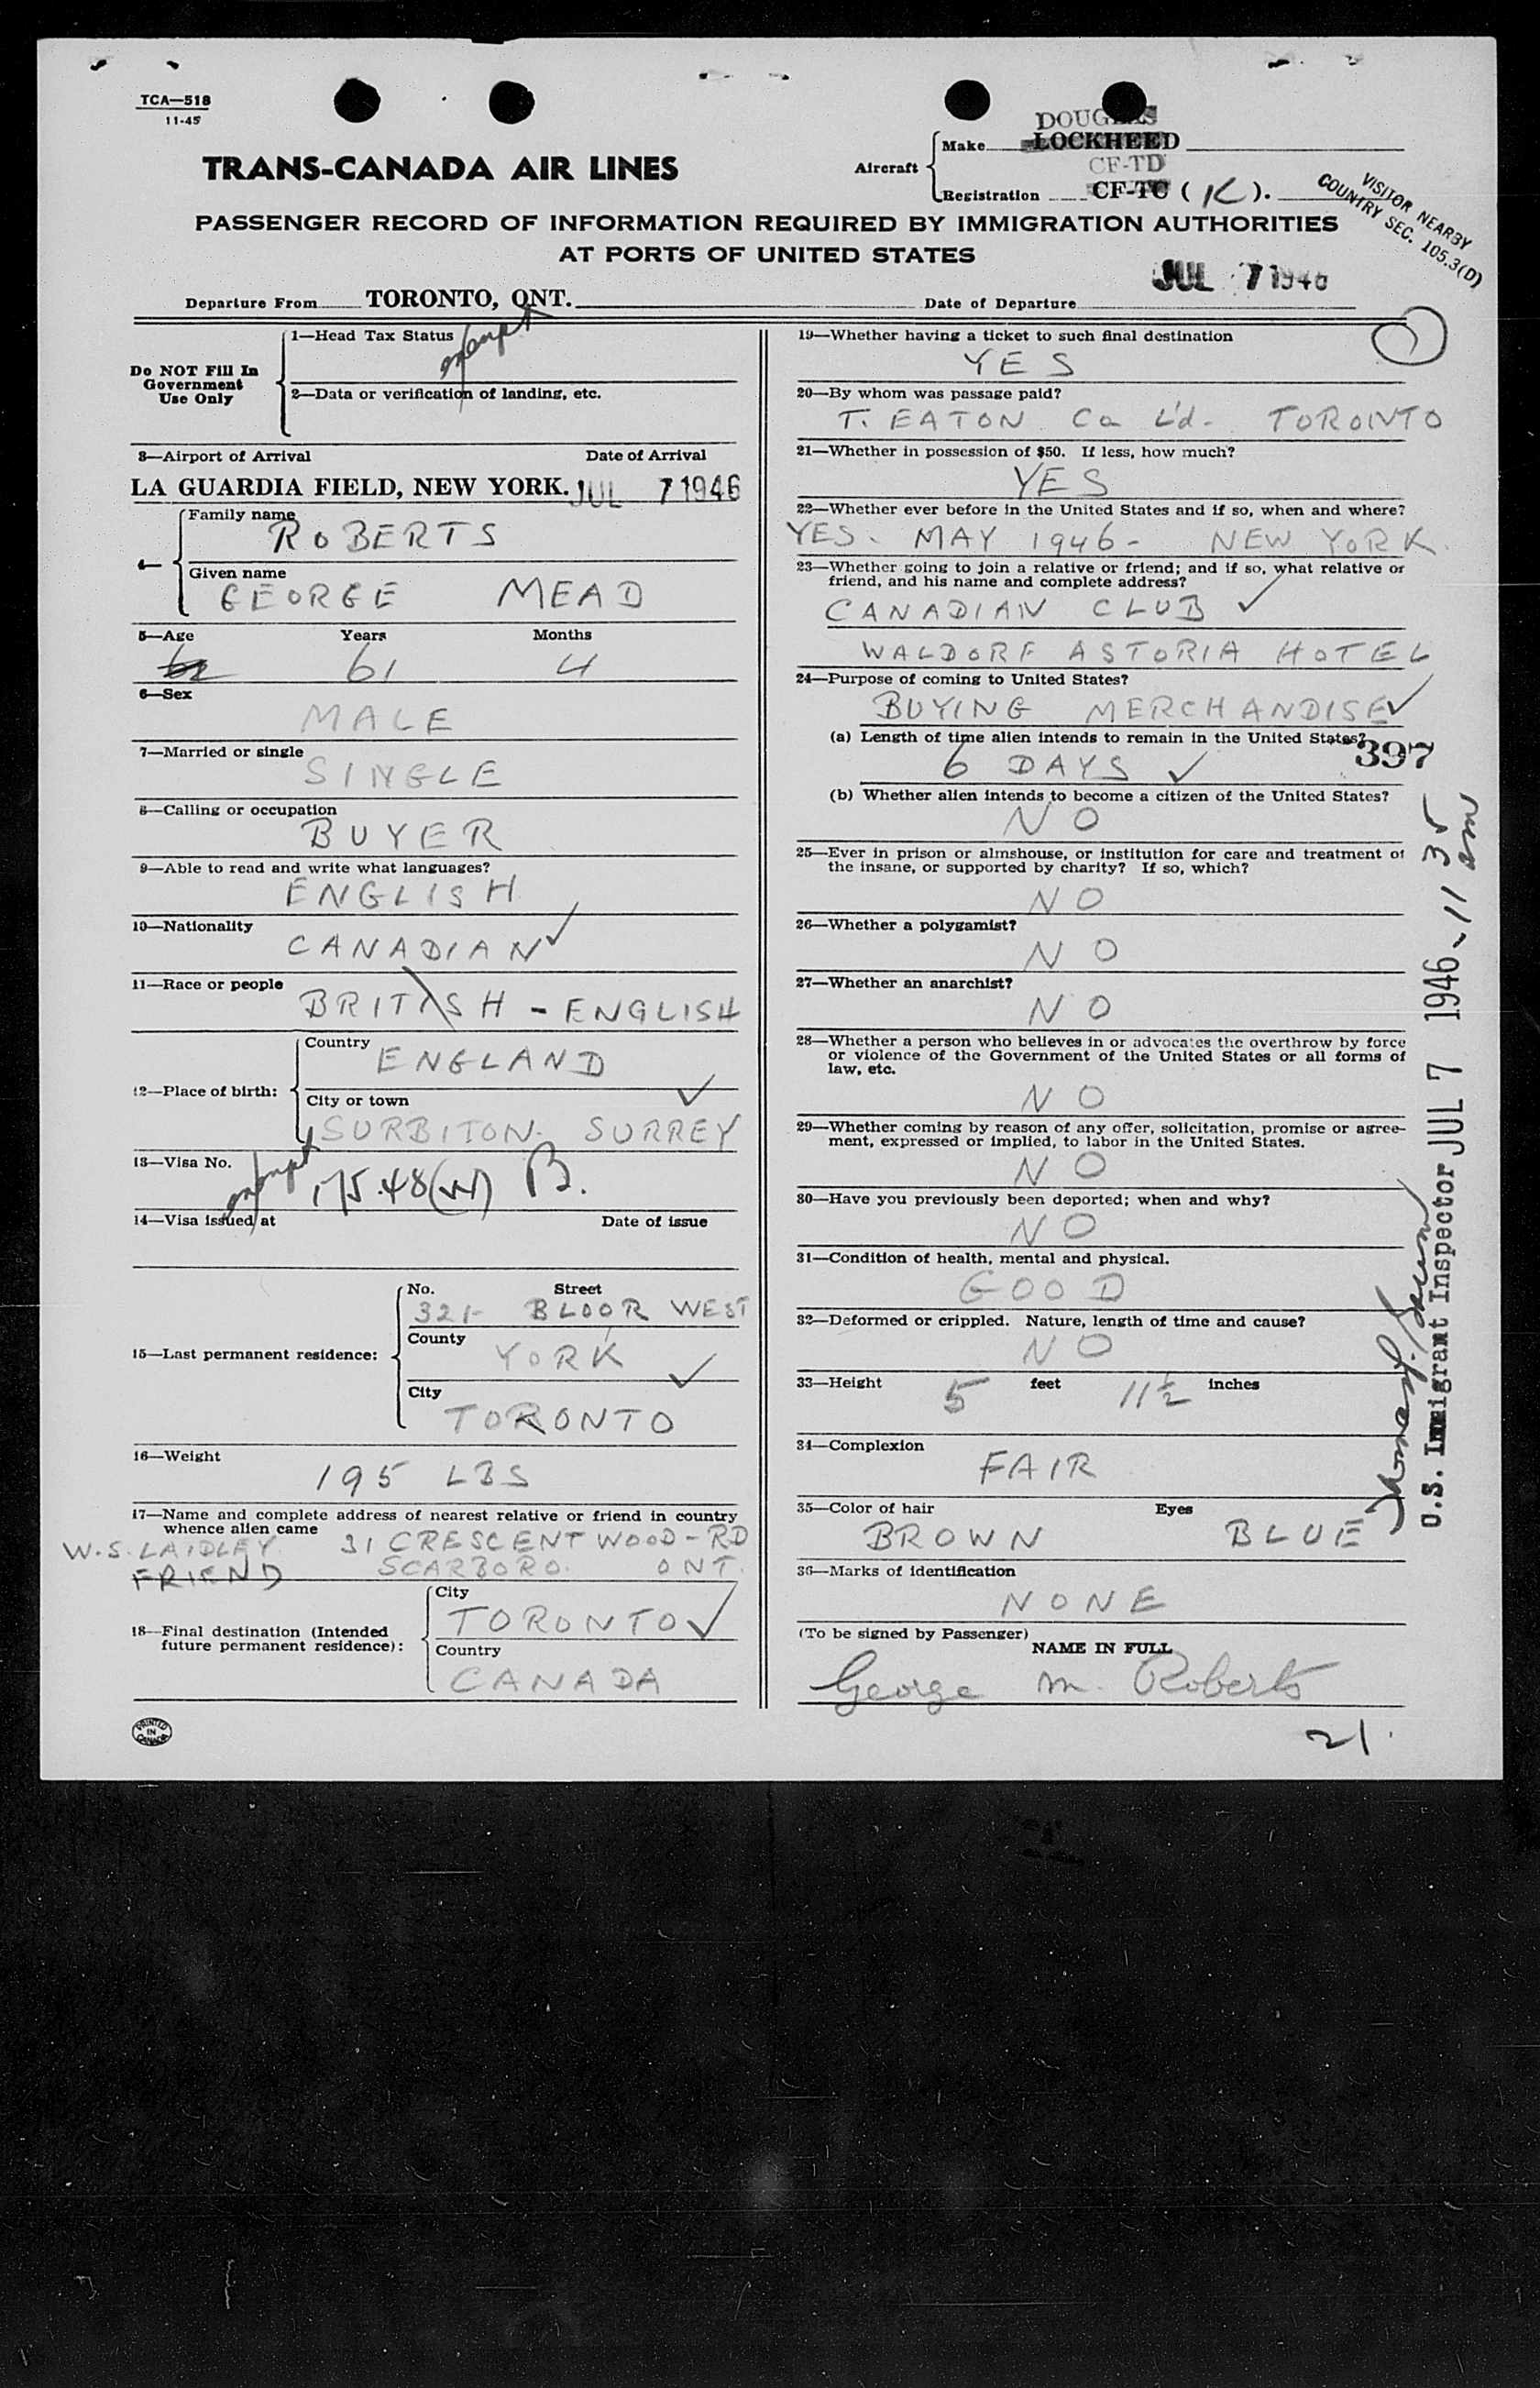 TCA—518
11-45
DOUGLAS
Make LOCKHEED
TRANS-CANADA AIR LINES
Aircraft
CF-TD
Registration CF-TC ( K ).
VISITOR NEARBY
COUNTRY SEC. 105.3(D)
PASSENGER RECORD OF INFORMATION REQUIRED BY IMMIGRATION AUTHORITIES
AT PORTS OF UNITED STATES
JUL 7 1946
Departure From TORONTO, ONT. Date of Departure
Do NOT Fill In
Government
Use Only
1—Head Tax Status
exempt
2—Data or verification of landing, etc.
3—Airport of Arrival Date of Arrival
LA GUARDIA FIELD, NEW YORK. JUL 7 1946
4—
Family name
ROBERTS
Given name
GEORGE MEAD
5—Age Years Months
62 61 4
6—Sex
MALE
7—Married or single
SINGLE
8—Calling or occupation
BUYER
9—Able to read and write what languages?
ENGLISH
10—Nationality
CANADIAN
11—Race or people
BRITISH - ENGLISH
12—Place of birth:
Country
ENGLAND
City or town
SURBITON. SURREY
13—Visa No.
exempt 175.48(W) B.
14—Visa issued at Date of issue
15—Last permanent residence:
No. Street
321 BLOOR WEST
County
YORK
City
TORONTO
16—Weight
195 LBS
17—Name and complete address of nearest relative or friend in country
whence alien came
W.S. LAIDLEY 31 CRESCENTWOOD-RD
FRIEND SCARBORO. ONT.
18—Final destination (Intended
future permanent residence):
City
TORONTO
Country
CANADA
PRINTED
IN
CANADA
19—Whether having a ticket to such final destination
YES
20—By whom was passage paid?
T. EATON Co L'd- TORONTO
21—Whether in possession of $50. If less, how much?
YES
22—Whether ever before in the United States and if so, when and where?
YES. MAY 1946- NEW YORK.
23—Whether going to join a relative or friend; and if so, what relative or
friend, and his name and complete address?
CANADIAN CLUB
WALDORF ASTORIA HOTEL
24—Purpose of coming to United States?
BUYING MERCHANDISE
(a) Length of time alien intends to remain in the United States?
397
6 DAYS
(b) Whether alien intends to become a citizen of the United States?
NO
25—Ever in prison or almshouse, or institution for care and treatment of
the insane, or supported by charity? If so, which?
NO
26—Whether a polygamist?
NO
27—Whether an anarchist?
NO
28—Whether a person who believes in or advocates the overthrow by force
or violence of the Government of the United States or all forms of
law, etc.
NO
29—Whether coming by reason of any offer, solicitation, promise or agree-
ment, expressed or implied, to labor in the United States.
NO
30—Have you previously been deported; when and why?
NO
31—Condition of health, mental and physical.
GOOD
32—Deformed or crippled. Nature, length of time and cause?
NO
33—Height 5 feet 11½ inches
34—Complexion
FAIR
35—Color of hair Eyes
BROWN BLUE
36—Marks of identification
NONE
(To be signed by Passenger)
NAME IN FULL
George M. Roberts
21.
U.S. Immigrant Inspector JUL 7 1946 - 11 35 am